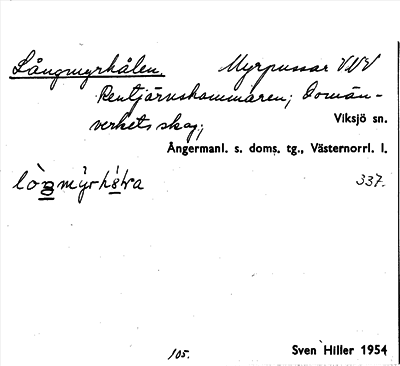 Långmyrhålen. Myrpussar VNV
Rentjärnskammaren; Domän-
verkets skog;
Viksjö sn.
Ångermanl. s. doms. tg., Västernorrl. l.
337.
105.
Sven Hiller 1954